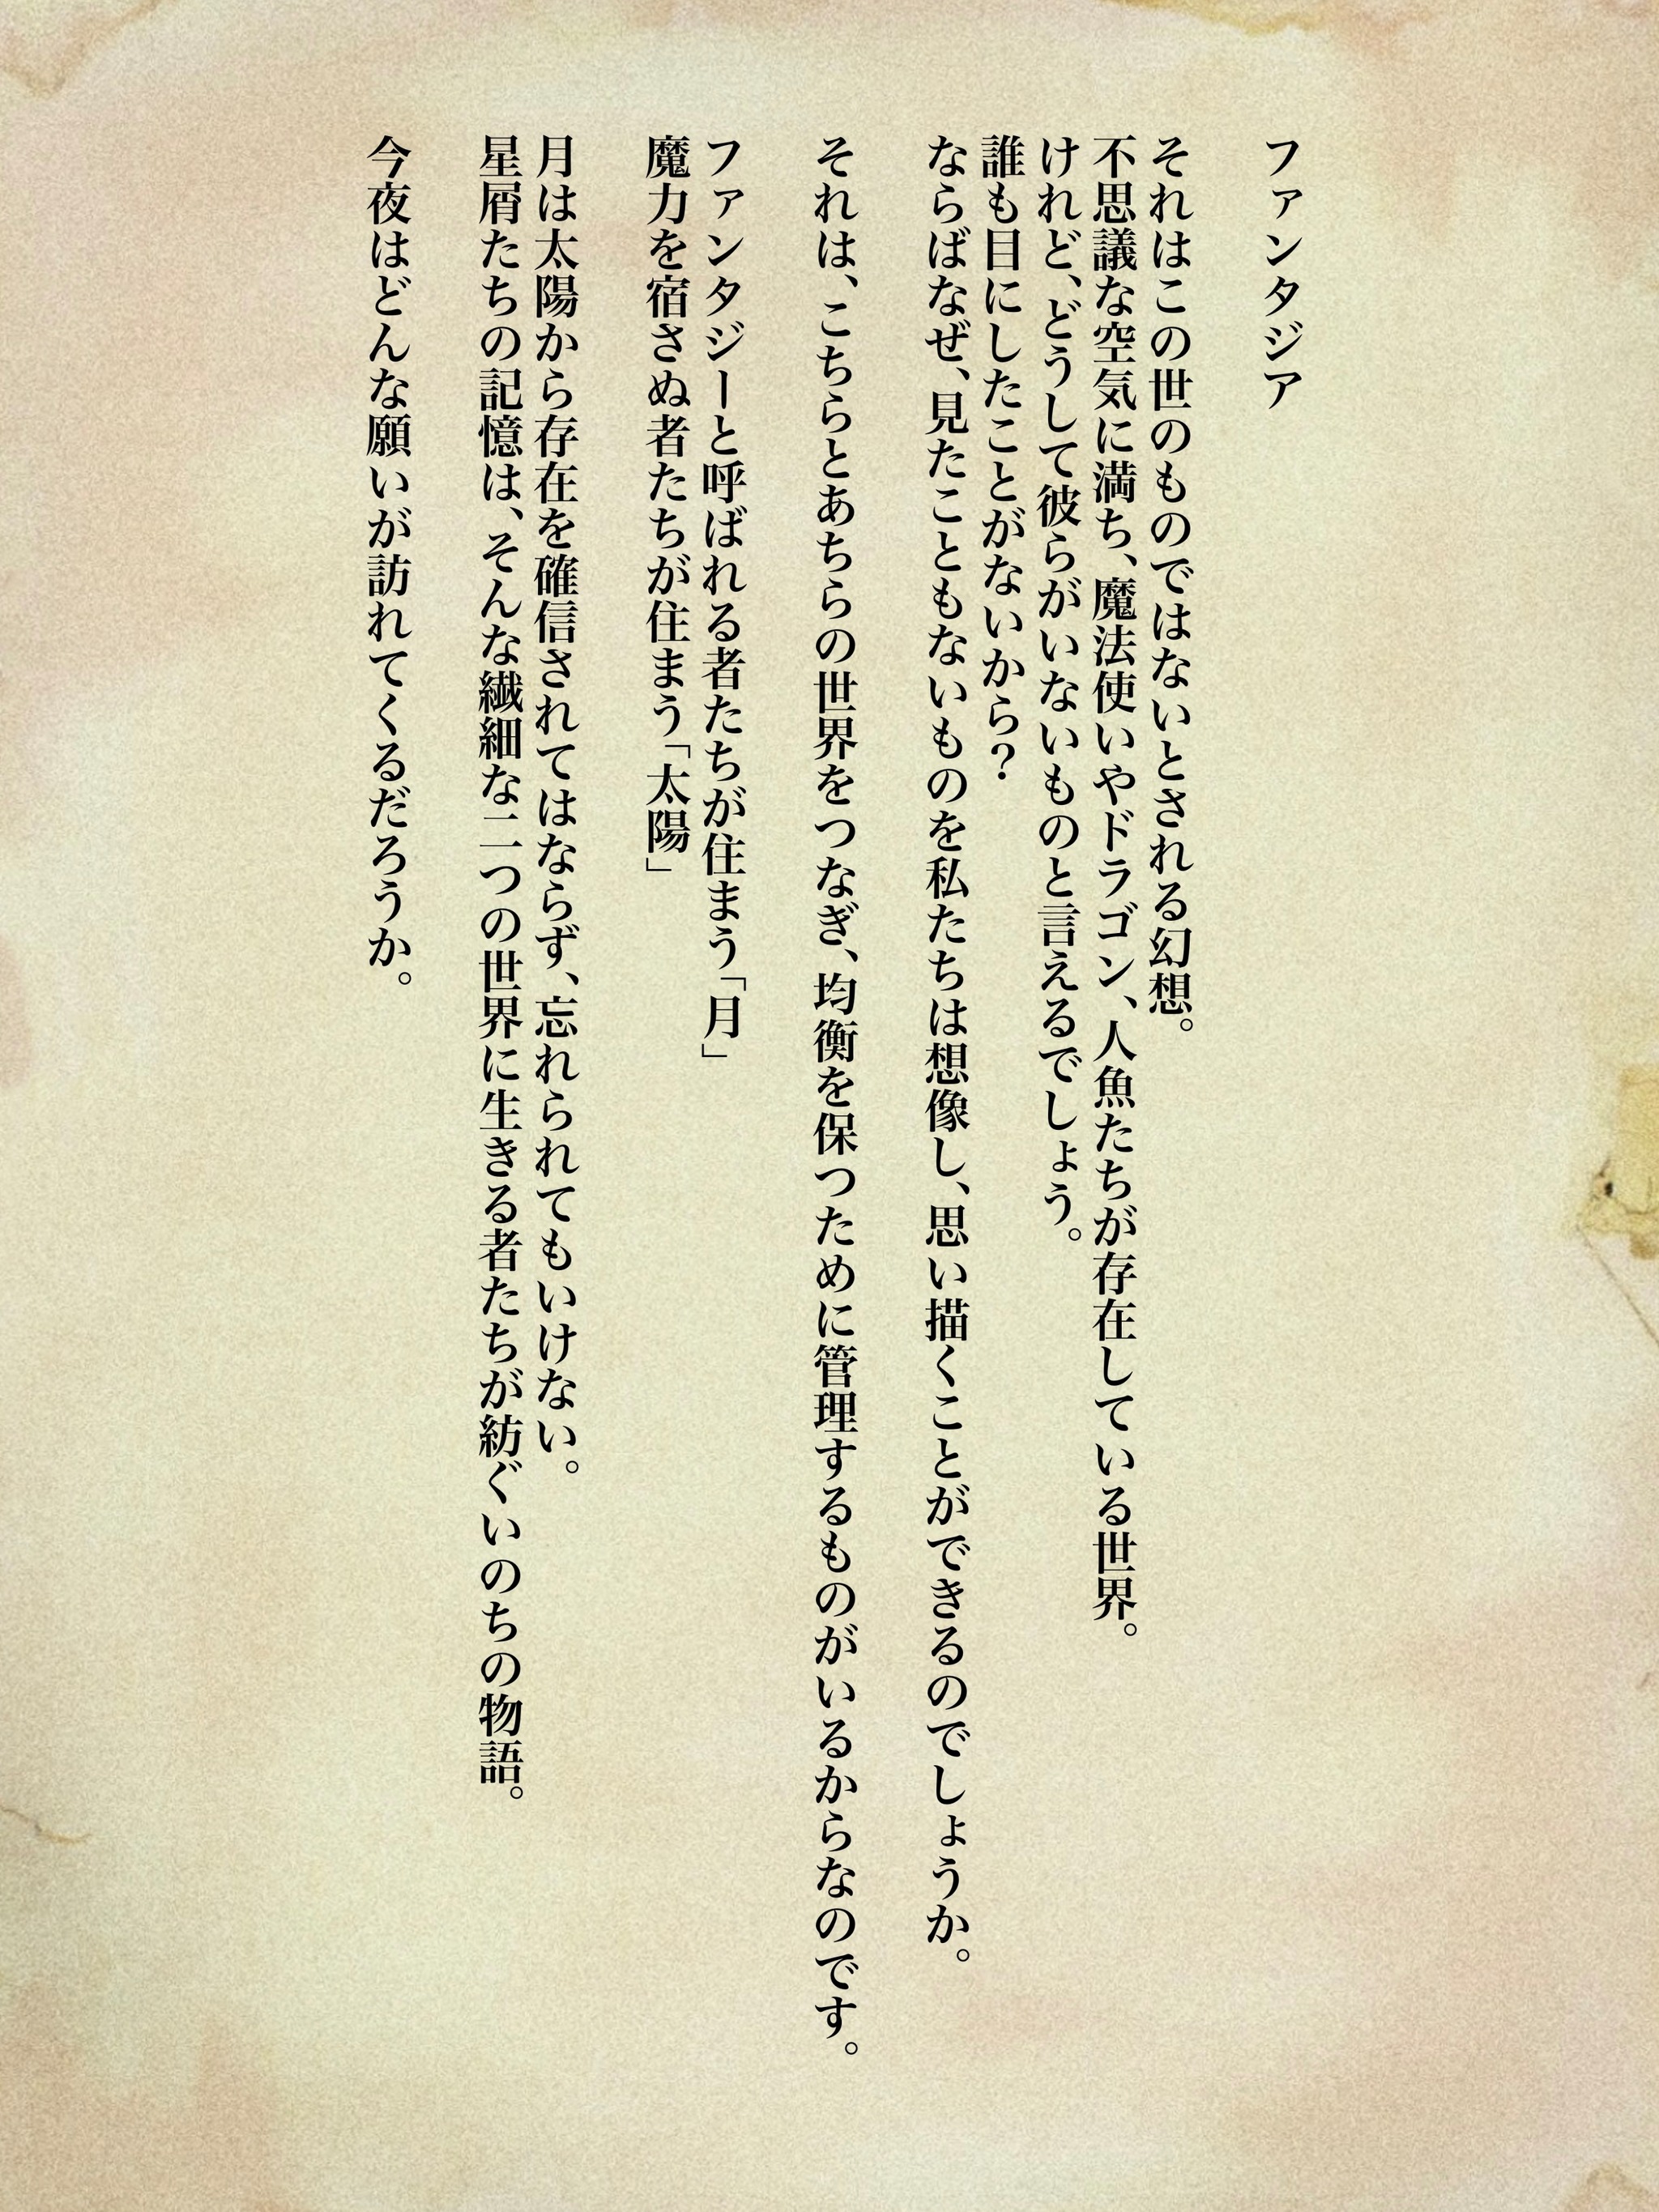 ファンタジア
それはこの世のものではないとされる幻想。
不思議な空気に満ち、魔法使いやドラゴン、人魚たちが存在している世界。
けれど、どうして彼らがいないものと言えるでしょう。
誰も目にしたことがないから？
ならばなぜ、見たこともないものを私たちは想像し、思い描くことができるのでしょうか。
それは、こちらとあちらの世界をつなぎ、均衡を保つために管理するものがいるからなのです。
ファンタジーと呼ばれる者たちが住まう「月」
魔力を宿さぬ者たちが住まう「太陽」
月は太陽から存在を確信されてはならず、忘れられてもいけない。
星屑たちの記憶は、そんな繊細な二つの世界に生きる者たちが紡ぐいのちの物語。
今夜はどんな願いが訪れてくるだろうか。